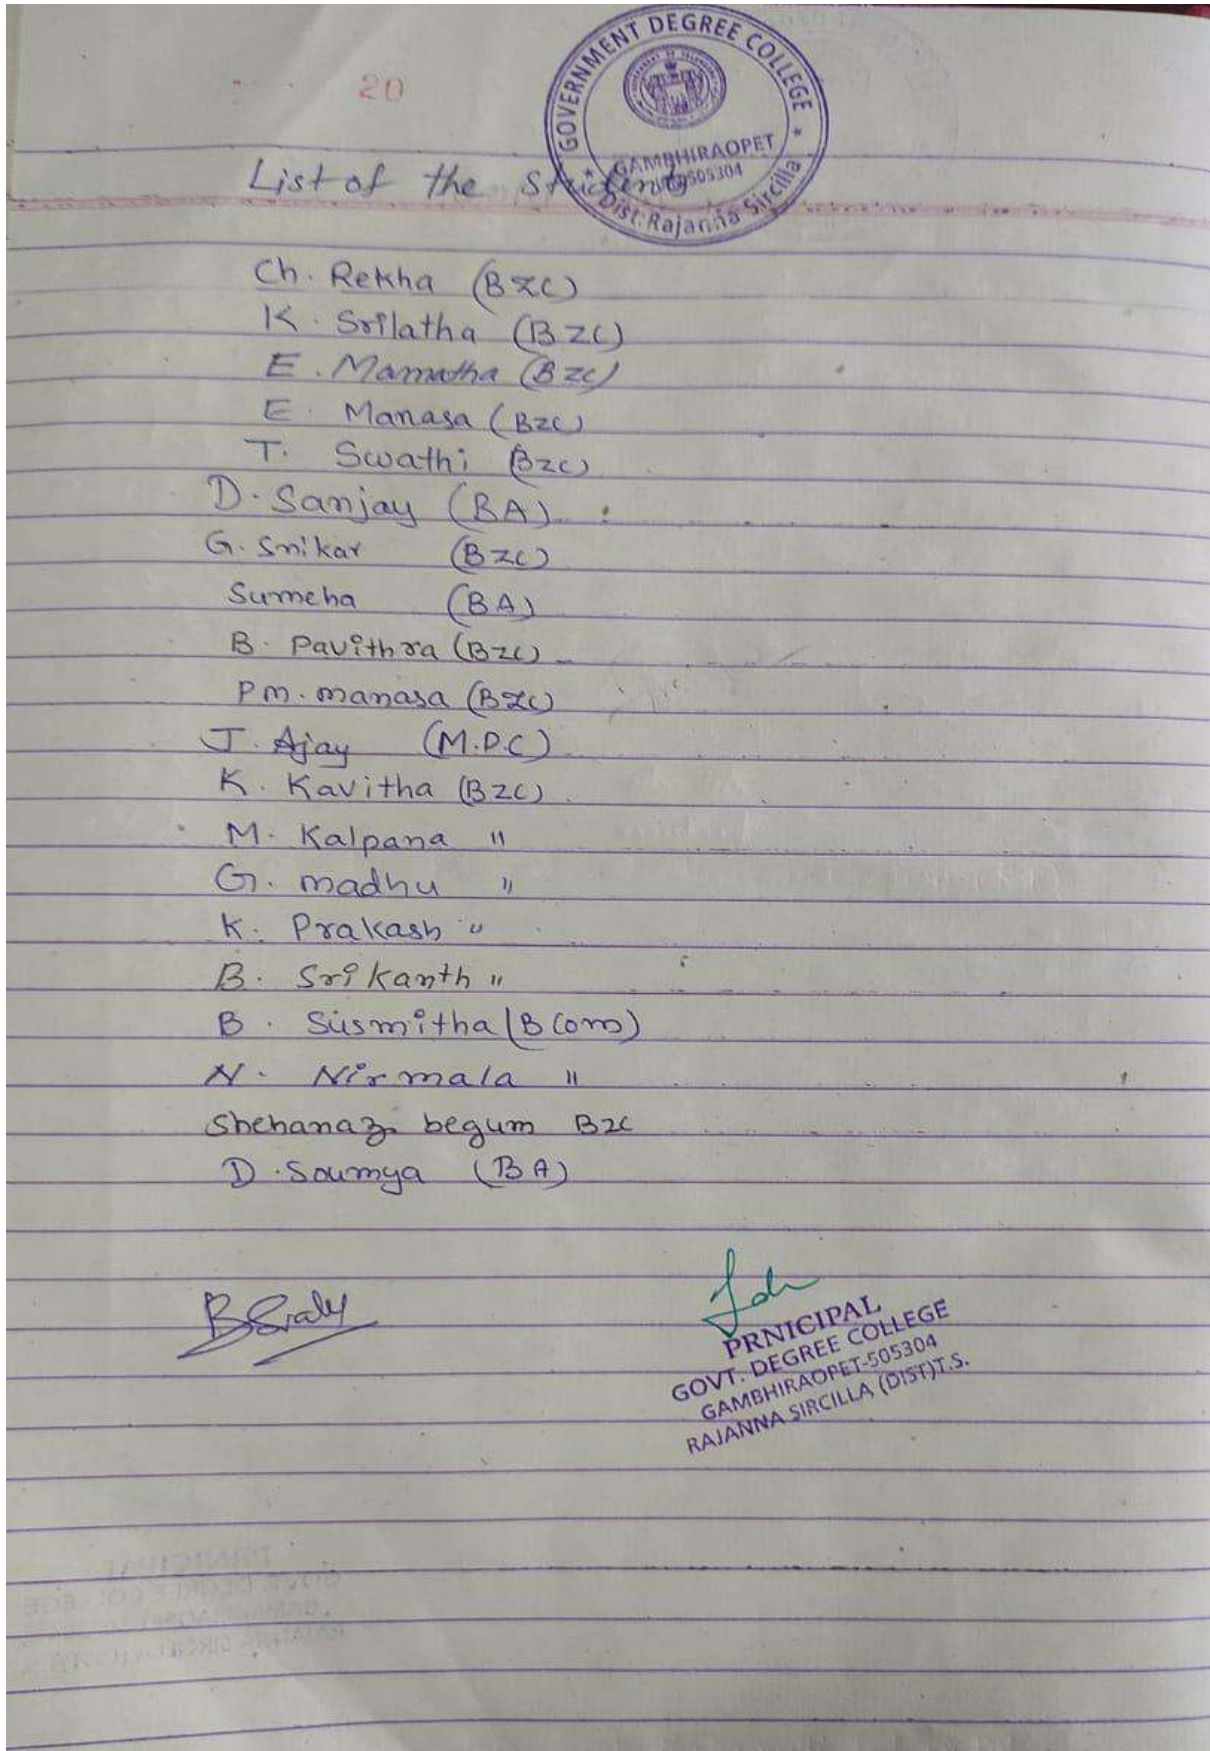 20
GOVERNMENT DEGREE COLLEGE
GAMBHIRAOPET
505304
* Dist. Rajanna Sircilla *
List of the Students
Ch. Rekha (BZC)
K. Srilatha (BZC)
E. Mamatha (BZC)
E. Manasa (BZC)
T. Swathi (BZC)
D. Sanjay (BA)
G. Srikar (BZC)
Sumeha (BA)
B. Pavithra (BZC)
Pm. manasa (BZC)
J. Ajay (M.P.C)
K. Kavitha (BZC)
M. Kalpana "
G. madhu "
K. Prakash "
B. Srikanth "
B. Susmitha (B Com)
N. Nirmala "
Shehanaz begum BZC
D. Soumya (BA)
PRNICIPAL
GOVT. DEGREE COLLEGE
GAMBHIRAOPET-505304
RAJANNA SIRCILLA (DIST)T.S.